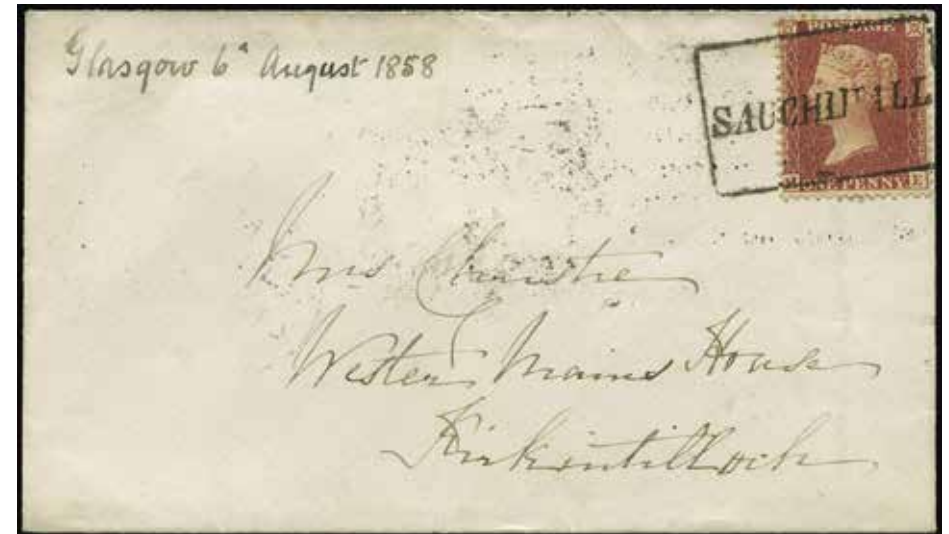 Glasgow 6a August 1858
POSTAGE
SAUCHIHALL
ONE PENNY
Mrs Christie
Wester Mains House
Kirkintilloch